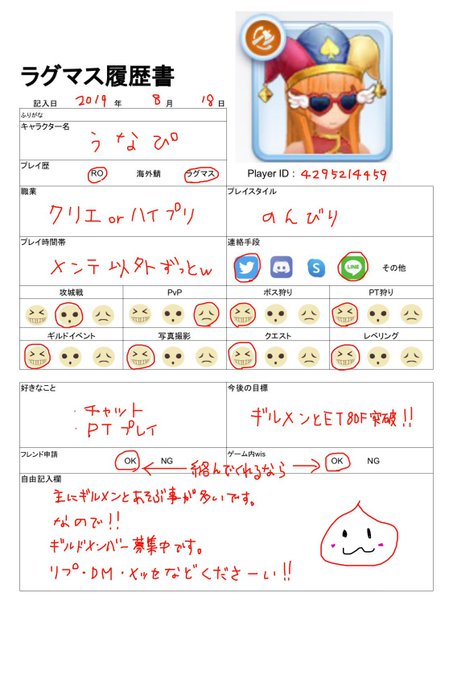 ラグマス履歴書
記入日 2019 年 8 月 18 日
ふりがな
キャラクター名
うなぴ
プレイ歴
RO 海外鯖 ラグマス
Player ID : 4295214459
職業
クリエ or ハイプリ
プレイスタイル
のんびり
プレイ時間帯
メンテ以外ずっとw
連絡手段
その他
攻城戦 PvP ボス狩り PT狩り
ギルドイベント 写真撮影 クエスト レベリング
好きなこと
・チャット
・PTプレイ
今後の目標
ギルメンとET80F突破!!
フレンド申請
OK NG
絡んでくれるなら
ゲーム内wis
OK NG
自由記入欄
主にギルメンとあそぶ事が多いです。
なので!!
ギルドメンバー募集中です。
リプ・DM・メッセなどくださーい!!